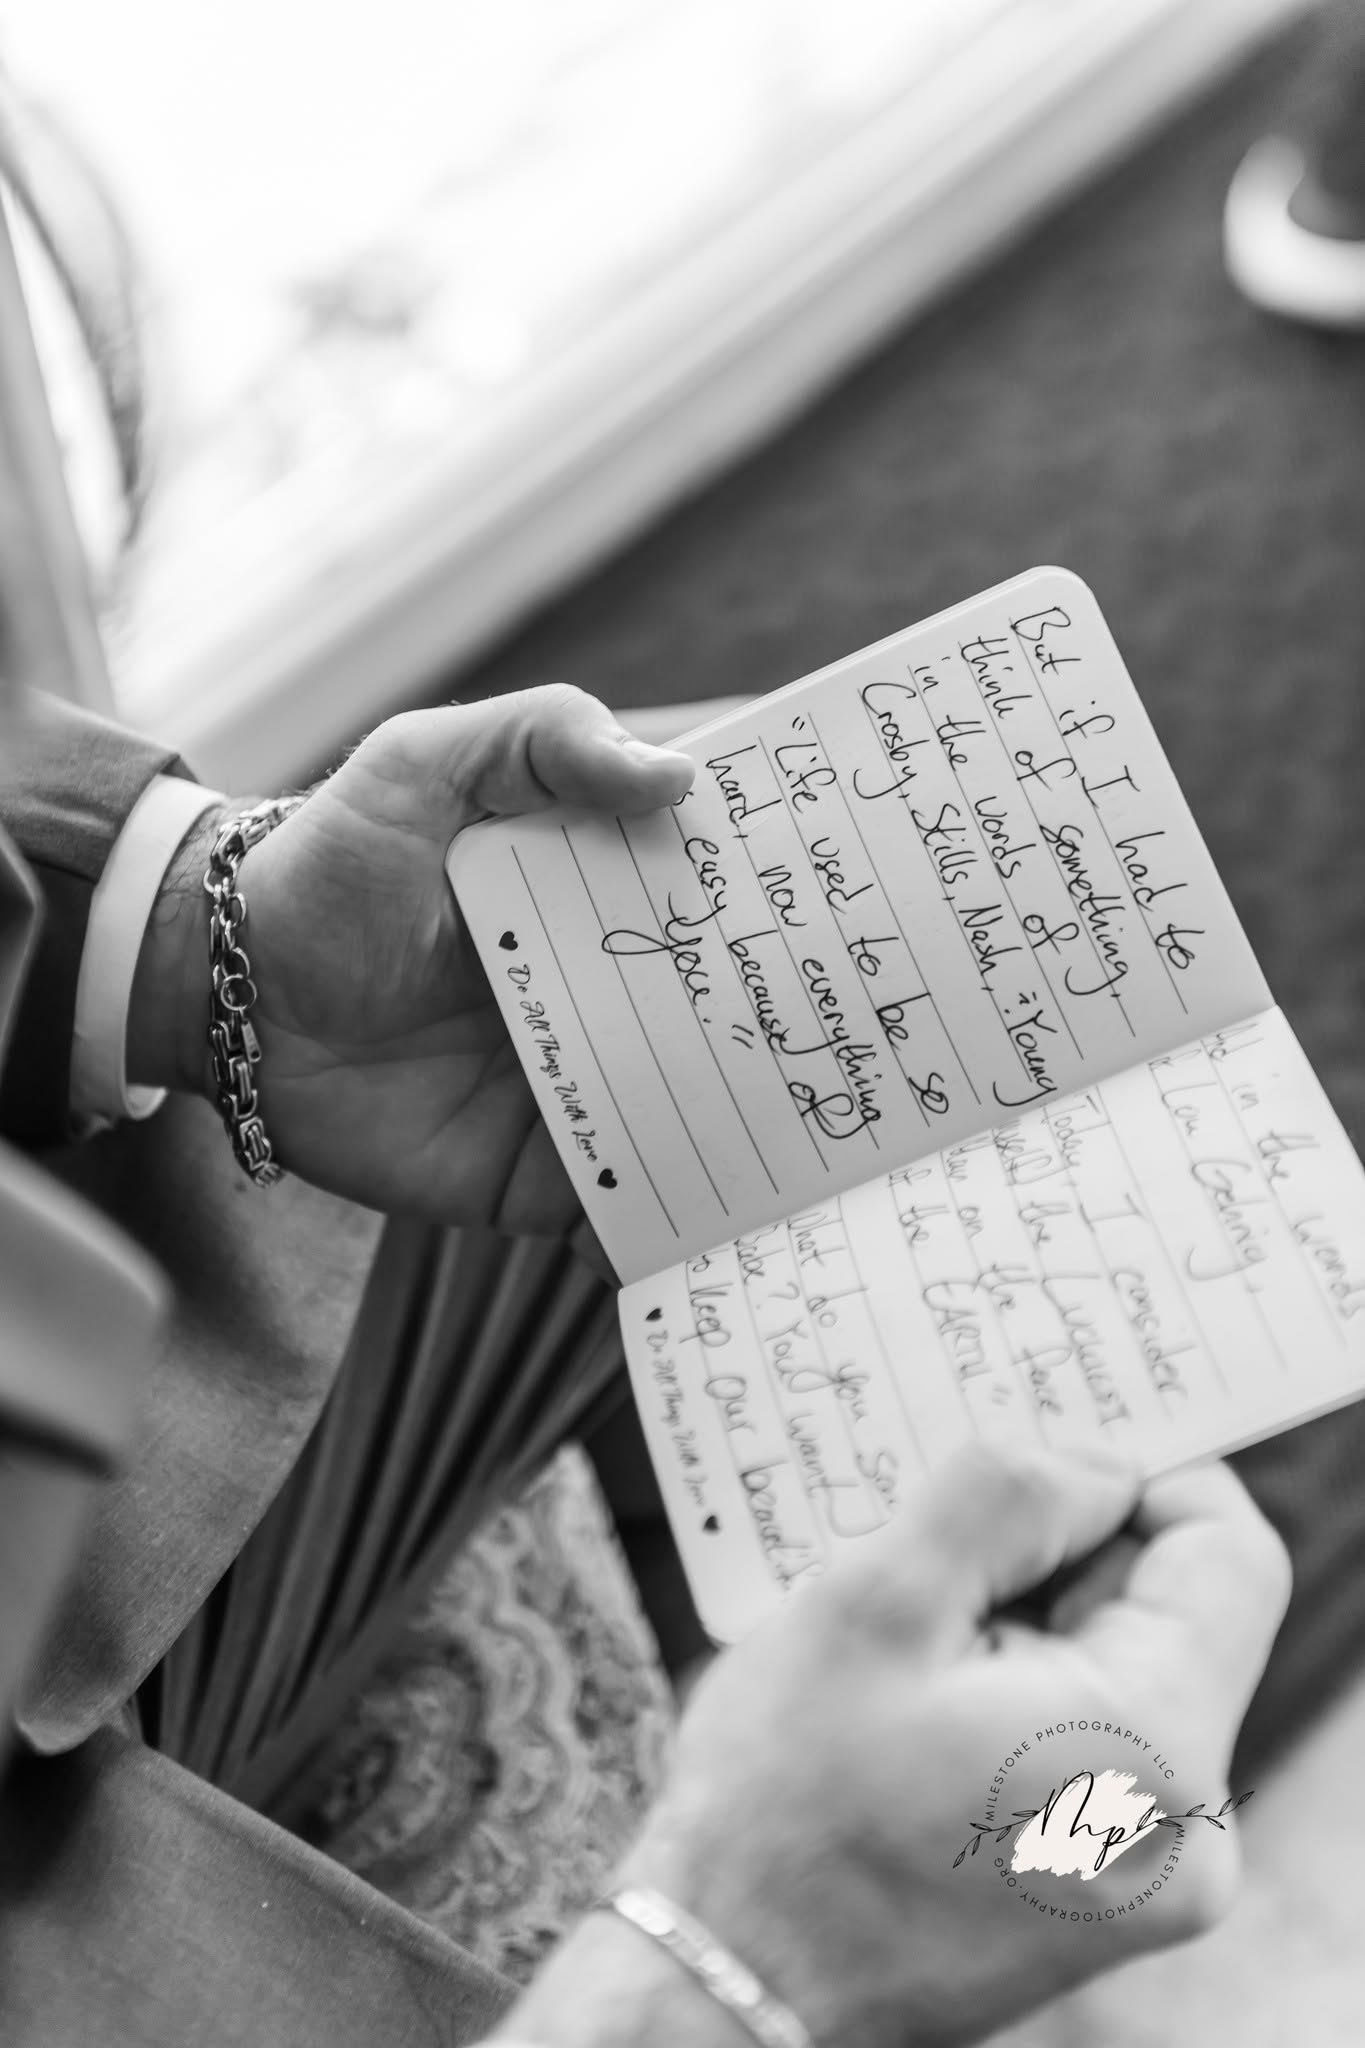 But if I had to
think of something,
in the words of
Crosby, Stills, Nash, & Young
"Life used to be so
hard, now everything
is easy because of
you."
♥ Do All Things With Love ♥
And in the words
of Lou Gehrig,
"Today, I consider
myself the LUCKIEST
man on the face
of the EARTH."
What do you say
Babe? You want
to keep our beautiful
♥ Do All Things With Love ♥
MILESTONE PHOTOGRAPHY LLC
mp
MILESTONEPHOTOGRAPHY.ORG